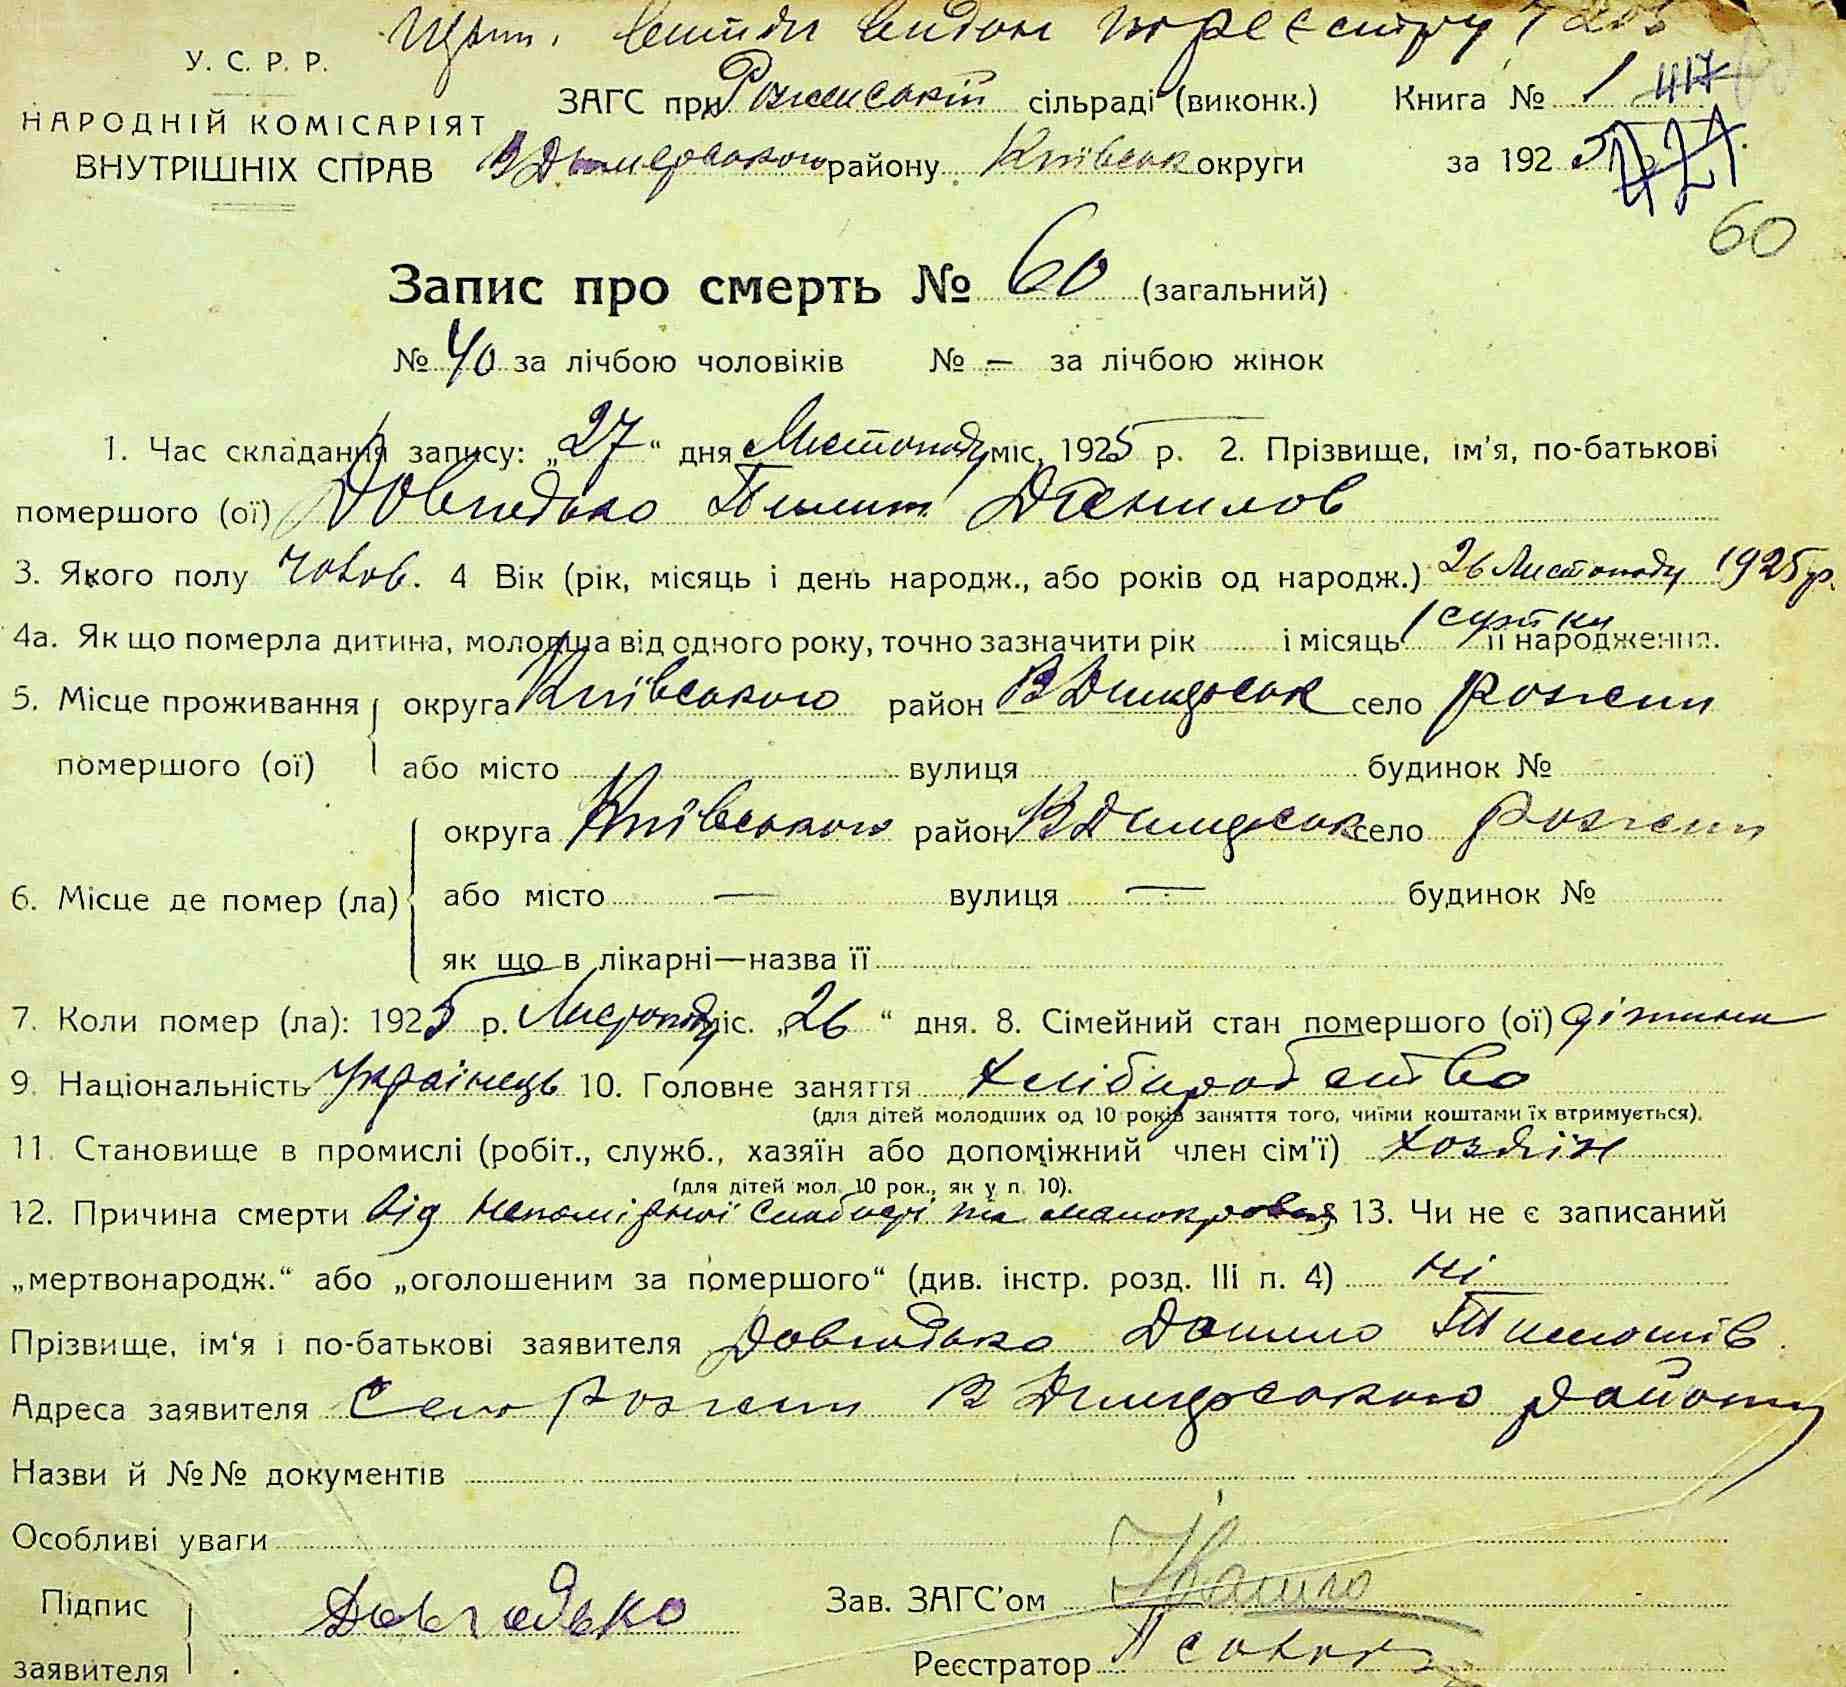 У. С. Р. Р.
НАРОДНІЙ КОМІСАРІЯТ
ВНУТРІШНІХ СПРАВ
ЗАГС при сільраді (виконк.) Книга № 1 417
В Димерського району Київськ округи за 1925 421
60
Запис про смерть № 60 (загальний)
№ 40 за лічбою чоловіків № — за лічбою жінок
1. Час складання запису: „27“ дня Листопаду міс. 1925 р. 2. Прізвище, ім'я, по-батькові
помершого (ої) Довгодько Данилов
3. Якого полу чолов. 4 Вік (рік, місяць і день народж., або років од народж.) 26 Листопаду 1925 р.
4а. Як що померла дитина, молодша від одного року, точно зазначити рік і місяць 1 сутки її народження.
5. Місце проживання округа Київського район В Димерськ село Рожни
помершого (ої) або місто вулиця будинок №
округа Київського район В Димерськ село Рожни
6. Місце де помер (ла) або місто — вулиця — будинок №
як що в лікарні—назва її
7. Коли помер (ла): 1925 р. Листопаду міс. „26“ дня. 8. Сімейний стан помершого (ої) дітина
9. Національність Українець 10. Головне заняття Хліборобство
(для дітей молодших од 10 років заняття того, чиїми коштами їх втримується).
11. Становище в промислі (робіт., служб., хазяїн або допоміжний член сім'ї) хозяїн
(для дітей мол. 10 рок., як у п. 10).
12. Причина смерти від непомірної слабості та малокровія 13. Чи не є записаний
„мертвонародж.“ або „оголошеним за помершого“ (див. інстр. розд. III п. 4) ні
Прізвище, ім'я і по-батькові заявителя Довгодько Данило Тимошів
Адреса заявителя Село Рожни В Димерського району
Назви й №№ документів
Особливі уваги
Підпис
заявителя Довгодько
Зав. ЗАГС'ом
Реєстратор